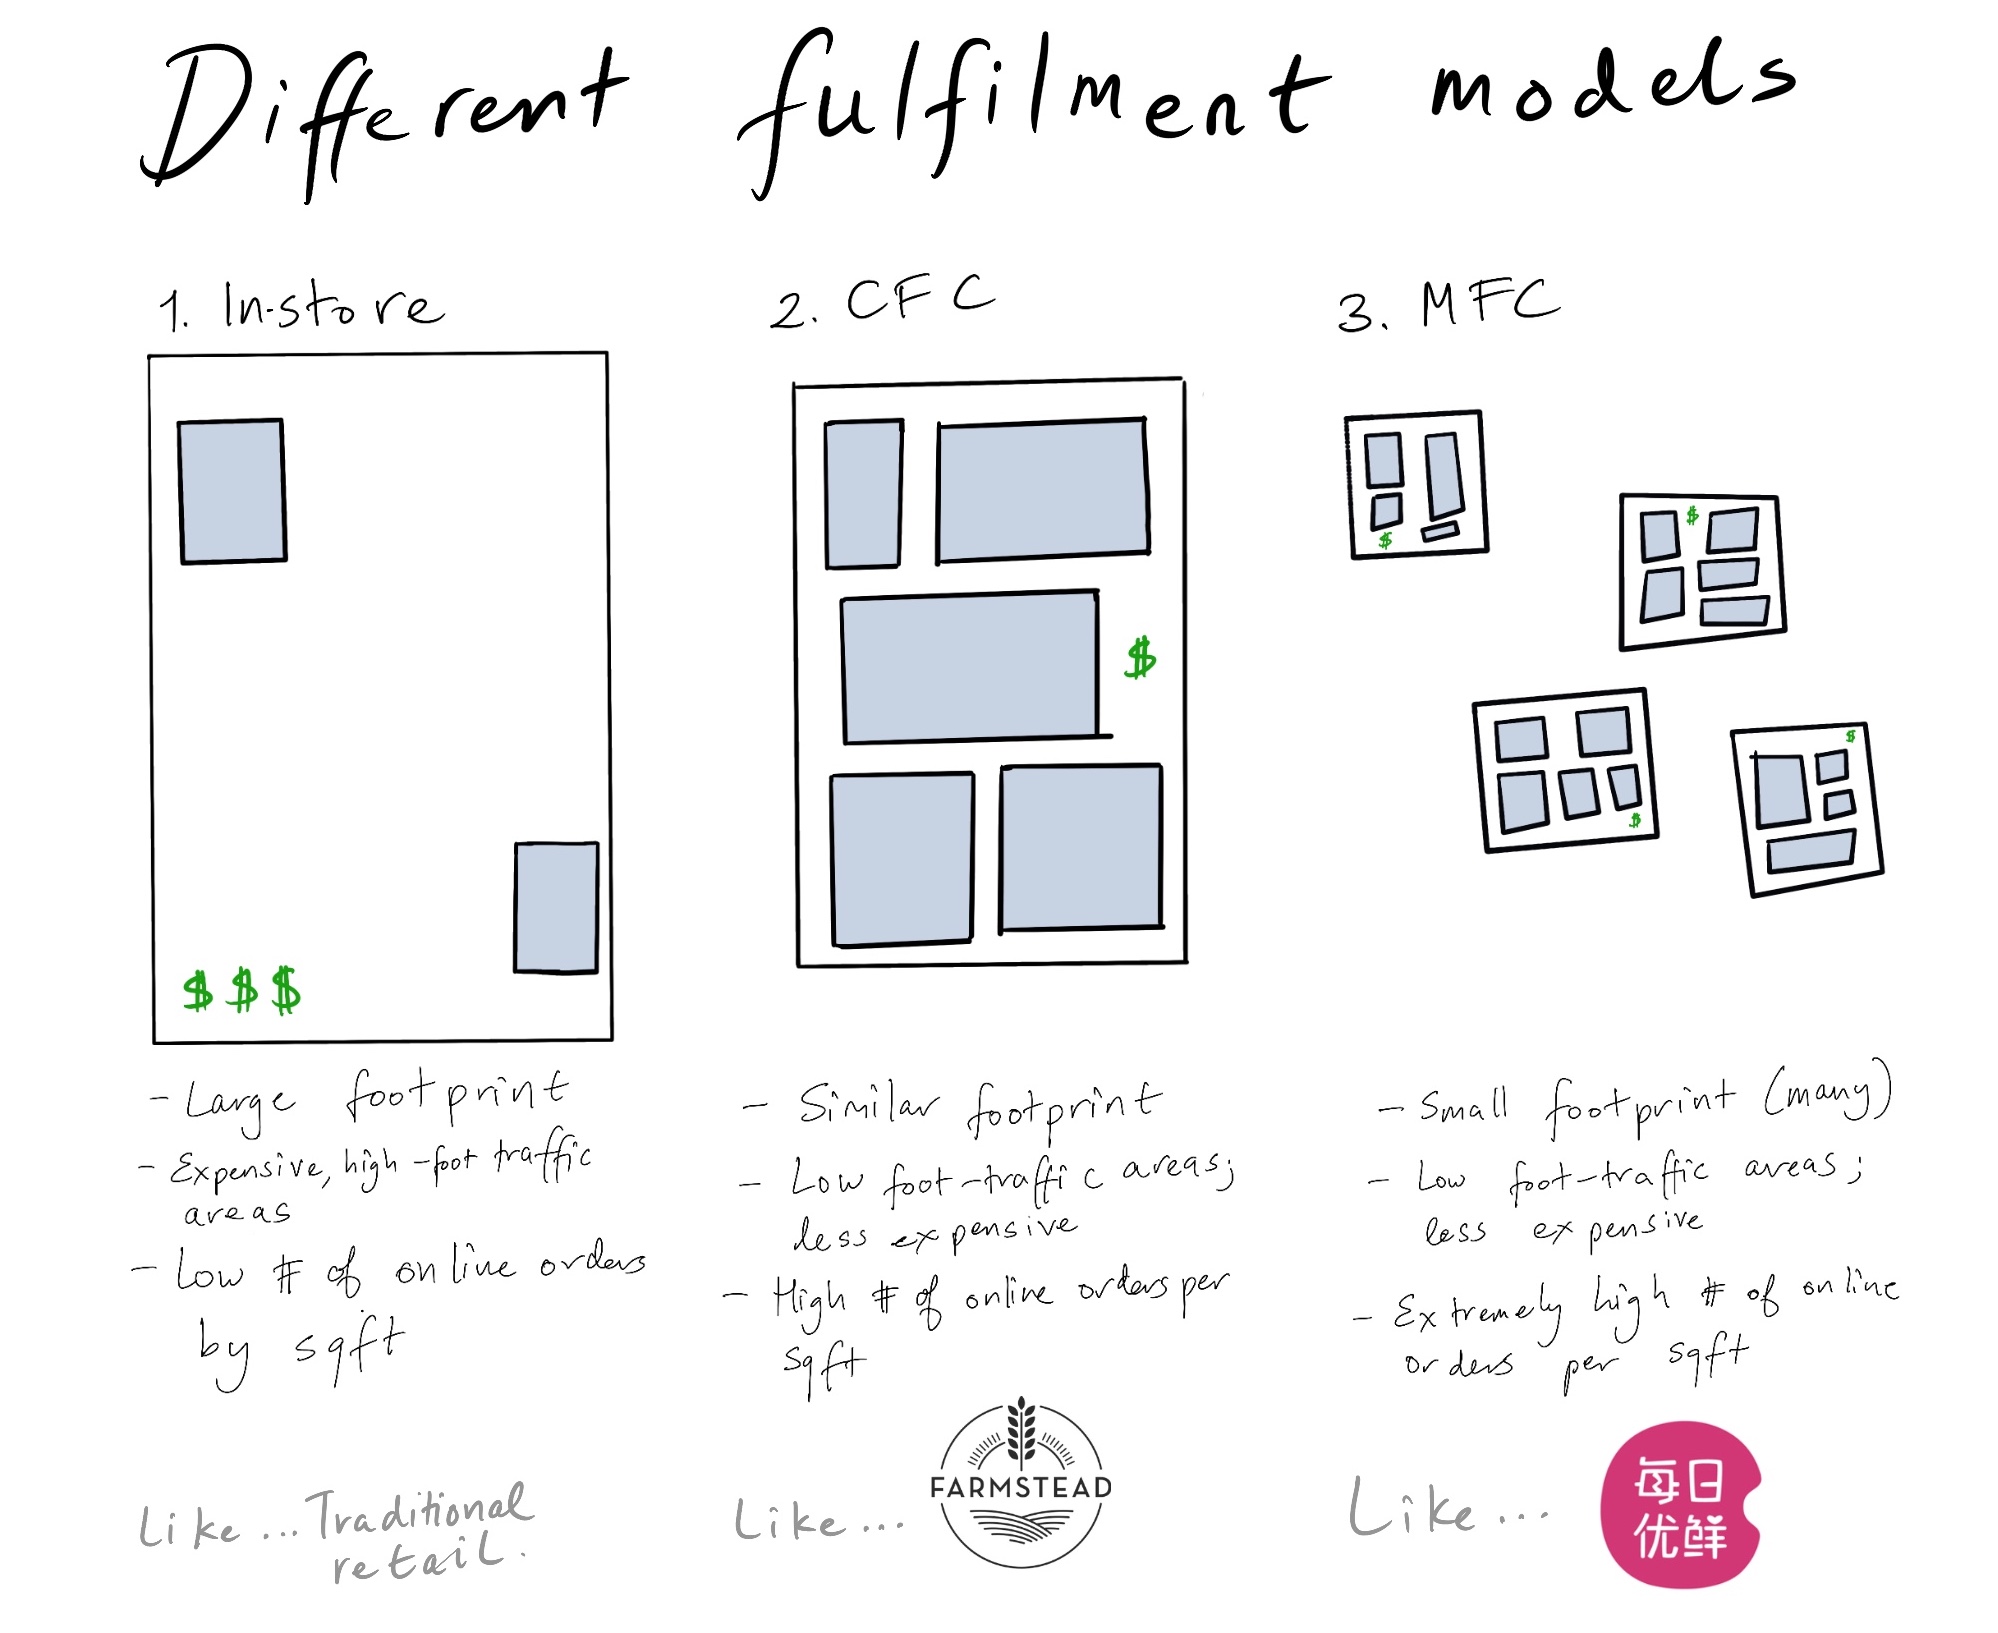 Different fulfilment models
1. In-store
$$$
- Large footprint
- Expensive, high-foot traffic
areas
- Low # of online orders
by sqft
Like... Traditional
retail.
2. CFC
$
- Similar footprint
- Low foot-traffic areas;
less expensive
- High # of online orders per
sqft
Like...
FARMSTEAD
3. MFC
$
$
$
$
- Small footprint (many)
- Low foot-traffic areas;
less expensive
- Extremely high # of online
orders per sqft
Like...
每日
优鲜